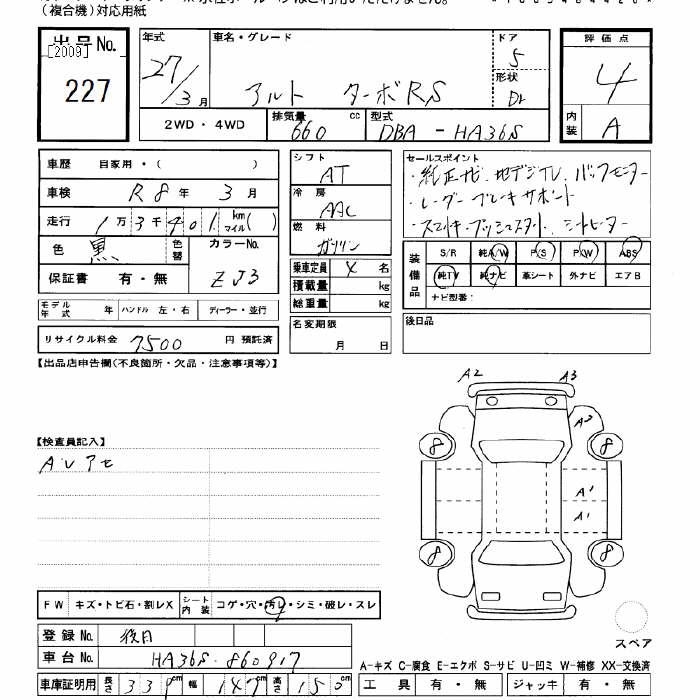 (複合機)対応用紙
出品No.
[2009]
227
年式
27/3月
車名・グレード
アルト ターボRS
ドア
5
形状
評価点
4
内装
A
2WD・4WD
排気量
660 cc
型式
DBA-HA36S
車歴 自家用・( )
車検 R8年 3月
走行 1万3千401 km マイル( )
色 黒
色替
カラーNo.
ZJ3
保証書 有・無
モデル年式 年
ハンドル 左・右
ディーラー・並行
リサイクル料金 7500 円 預託済
シフト
AT
冷房
AAC
燃料
ガソリン
乗車定員 4名
積載量 kg
総重量 kg
名変期限
月 日
セールスポイント
・純正ナビ、地デジTV、バックモニター
・レーダーブレーキサポート
・スマートキープッシュスタート、シートヒーター
装備品
S/R 純A/W P(S) P(W) ABS
純TV 純ナビ 革シート 外ナビ エアB
ナビ型番:
後日品
【出品店申告欄(不良箇所・欠品・注意事項等)】
【検査員記入】
A2
A3
A3
8
8
A1
A1
8
8
スペア
FW キズ・トビ石・割レX
シート内装 コゲ・穴・汚レ・シミ・破レ・スレ
登録No. 後日
車台No. HA36S-860917
車庫証明用 長さ 339 cm 幅 147 cm 高さ 150 cm
A-キズ C-腐食 E-エクボ S-サビ U-凹ミ W-補修 XX-交換済
工具 有・無
ジャッキ 有・無